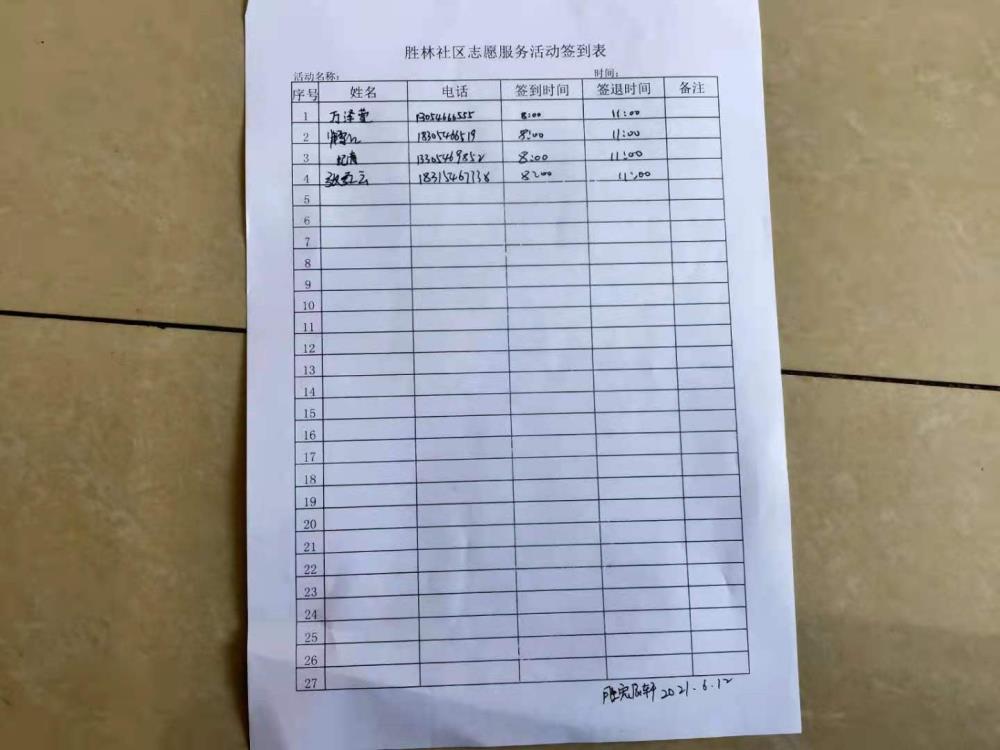 胜林社区志愿服务活动签到表
活动名称： 时间：
序号 姓名 电话 签到时间 签退时间 备注
1 万泽莹 13054666555 8:00 11:00
2 18305466519 8:00 11:00
3 13305469852 8:00 11:00
4 张红云 18315467738 8:00 11:00
5
6
7
8
9
10
11
12
13
14
15
16
17
18
19
20
21
22
23
24
25
26
27
胜宏景轩 2021.6.12